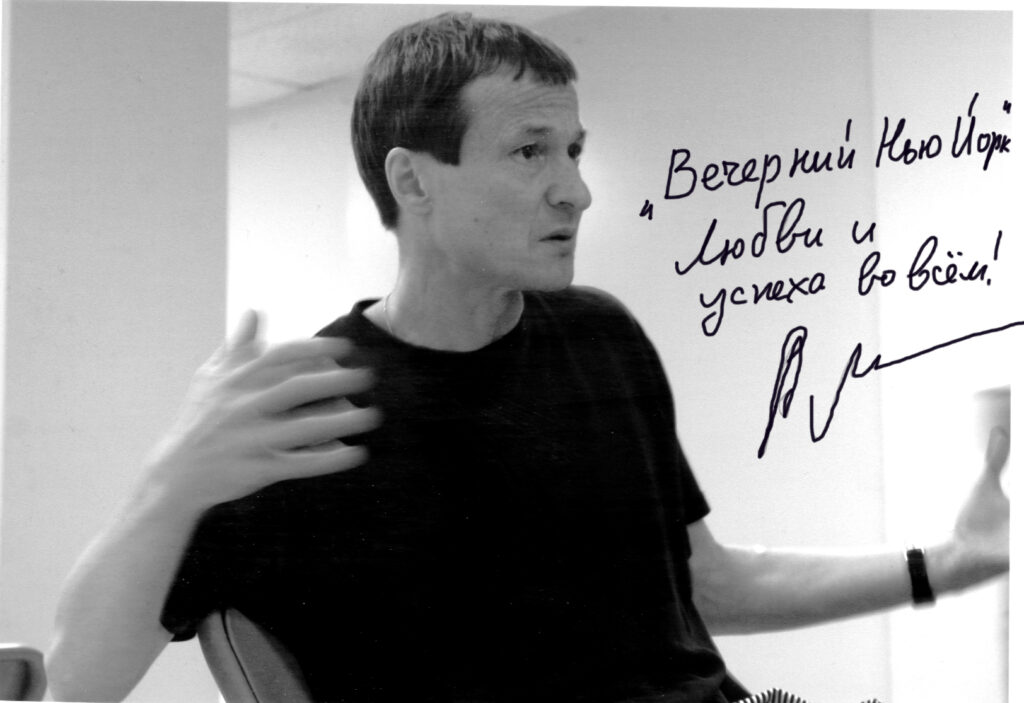 „Вечерний Нью Йорк"
Любви и
успеха во всём!